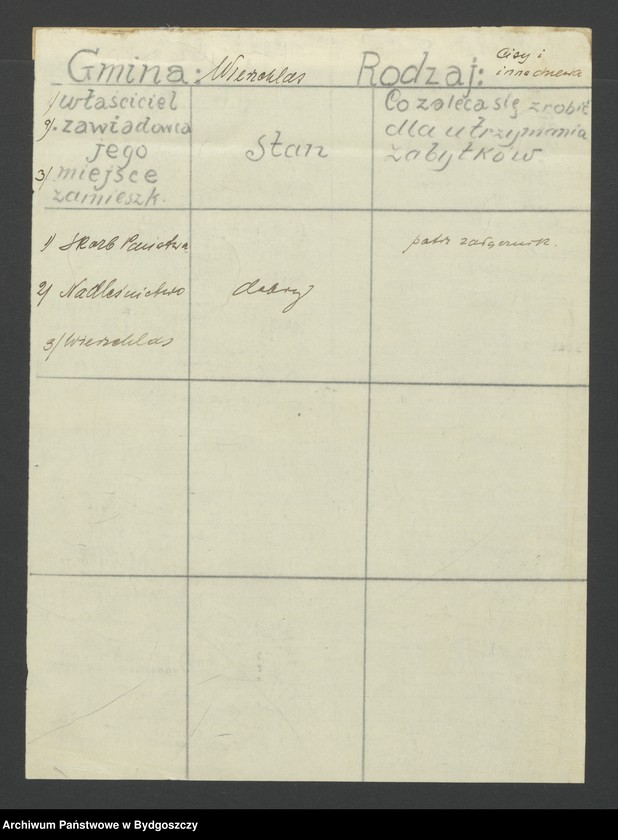 Gmina: Wierzchlas Rodzaj: Cisy i
inne drzewa
1/ właściciel
2/. zawiadowca
jego
3/ miejsce
zamieszk.
Stan
Co zaleca się zrobić
dla utrzymania
zabytków
1/ Skarb Państwa
2/ Nadleśnictwo
3/ Wierzchlas
dobry
patrz załącznik.
Archiwum Państwowe w Bydgoszczy